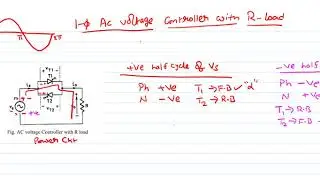 1-ϕ Ac voltage Controller with R-load
π
2π
+ve half cycle of Vs
Ph +ve T1→F.B✓ "α"
N -ve T2→R.B
-ve half
Ph -ve
N +ve
T1→R.B
T2→F.B
T1
T2
R
Fig. AC voltage Controller with R load
Power Ckt